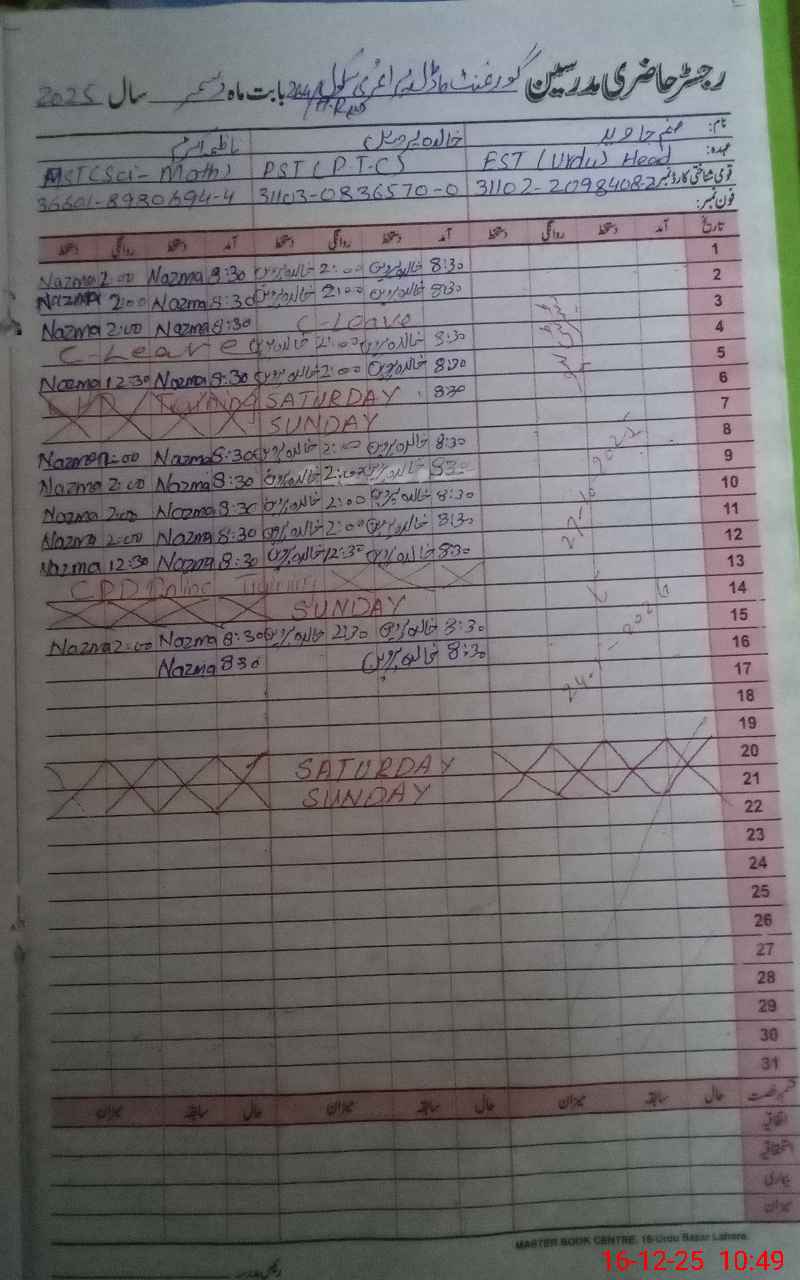 رجسٹر حاضری مدرسین گورنمنٹ ماڈل پرائمری سکول بابت ماہ دسمبر سال 2025
نام: صنم جاوید خالدہ پروین
عہدہ: EST (Urdu) Head PST (P.T.C) MST(Sci-Math)
قومی شناختی کارڈ نمبر 31102-2098408-2 31103-0836570-0 36601-8930694-4
فون نمبر:
تاریخ آمد دستخط روانگی دستخط آمد دستخط روانگی دستخط آمد دستخط روانگی دستخط
1 8:30 خالدہ پروین 2:00 خالدہ پروین Nazma 8:30 Nazma 2:00
2 8:30 خالدہ پروین 2:00 خالدہ پروین Nazma 8:30 Nazma 2:00
3 C-Leave Nazma 8:30 Nazma 2:00
4 8:30 خالدہ پروین 2:00 خالدہ پروین C-Leave
5 8:30 خالدہ پروین 2:00 خالدہ پروین Nazma 8:30 Nazma 12:30
6 8:30 SATURDAY Training
7 SUNDAY
8 8:30 خالدہ پروین 2:00 خالدہ پروین Nazma 8:30 Nazma 2:00
9 8:30 خالدہ پروین 2:00 خالدہ پروین Nazma 8:30 Nazma 2:00
10 8:30 خالدہ پروین 2:00 خالدہ پروین Nazma 8:30 Nazma 2:00
11 8:30 خالدہ پروین 2:00 خالدہ پروین Nazma 8:30 Nazma 2:00
12 8:30 خالدہ پروین 12:30 خالدہ پروین Nazma 8:30 Nazma 12:30
13 CPD Online Training
14 SUNDAY
15 8:30 خالدہ پروین 2:30 خالدہ پروین Nazma 8:30 Nazma 2:00
16 8:30 خالدہ پروین Nazma 8:30
17
18
19
20 SATURDAY
21 SUNDAY
22
23
24
25
26
27
28
29
30
31
قسم رخصت حال سابقہ میزان حال سابقہ میزان حال سابقہ میزان
اتفاقیہ
استحقاقیہ
بیماری
میزان
MASTER BOOK CENTRE, 16-Urdu Bazar Lahore.
16-12-25 10:49